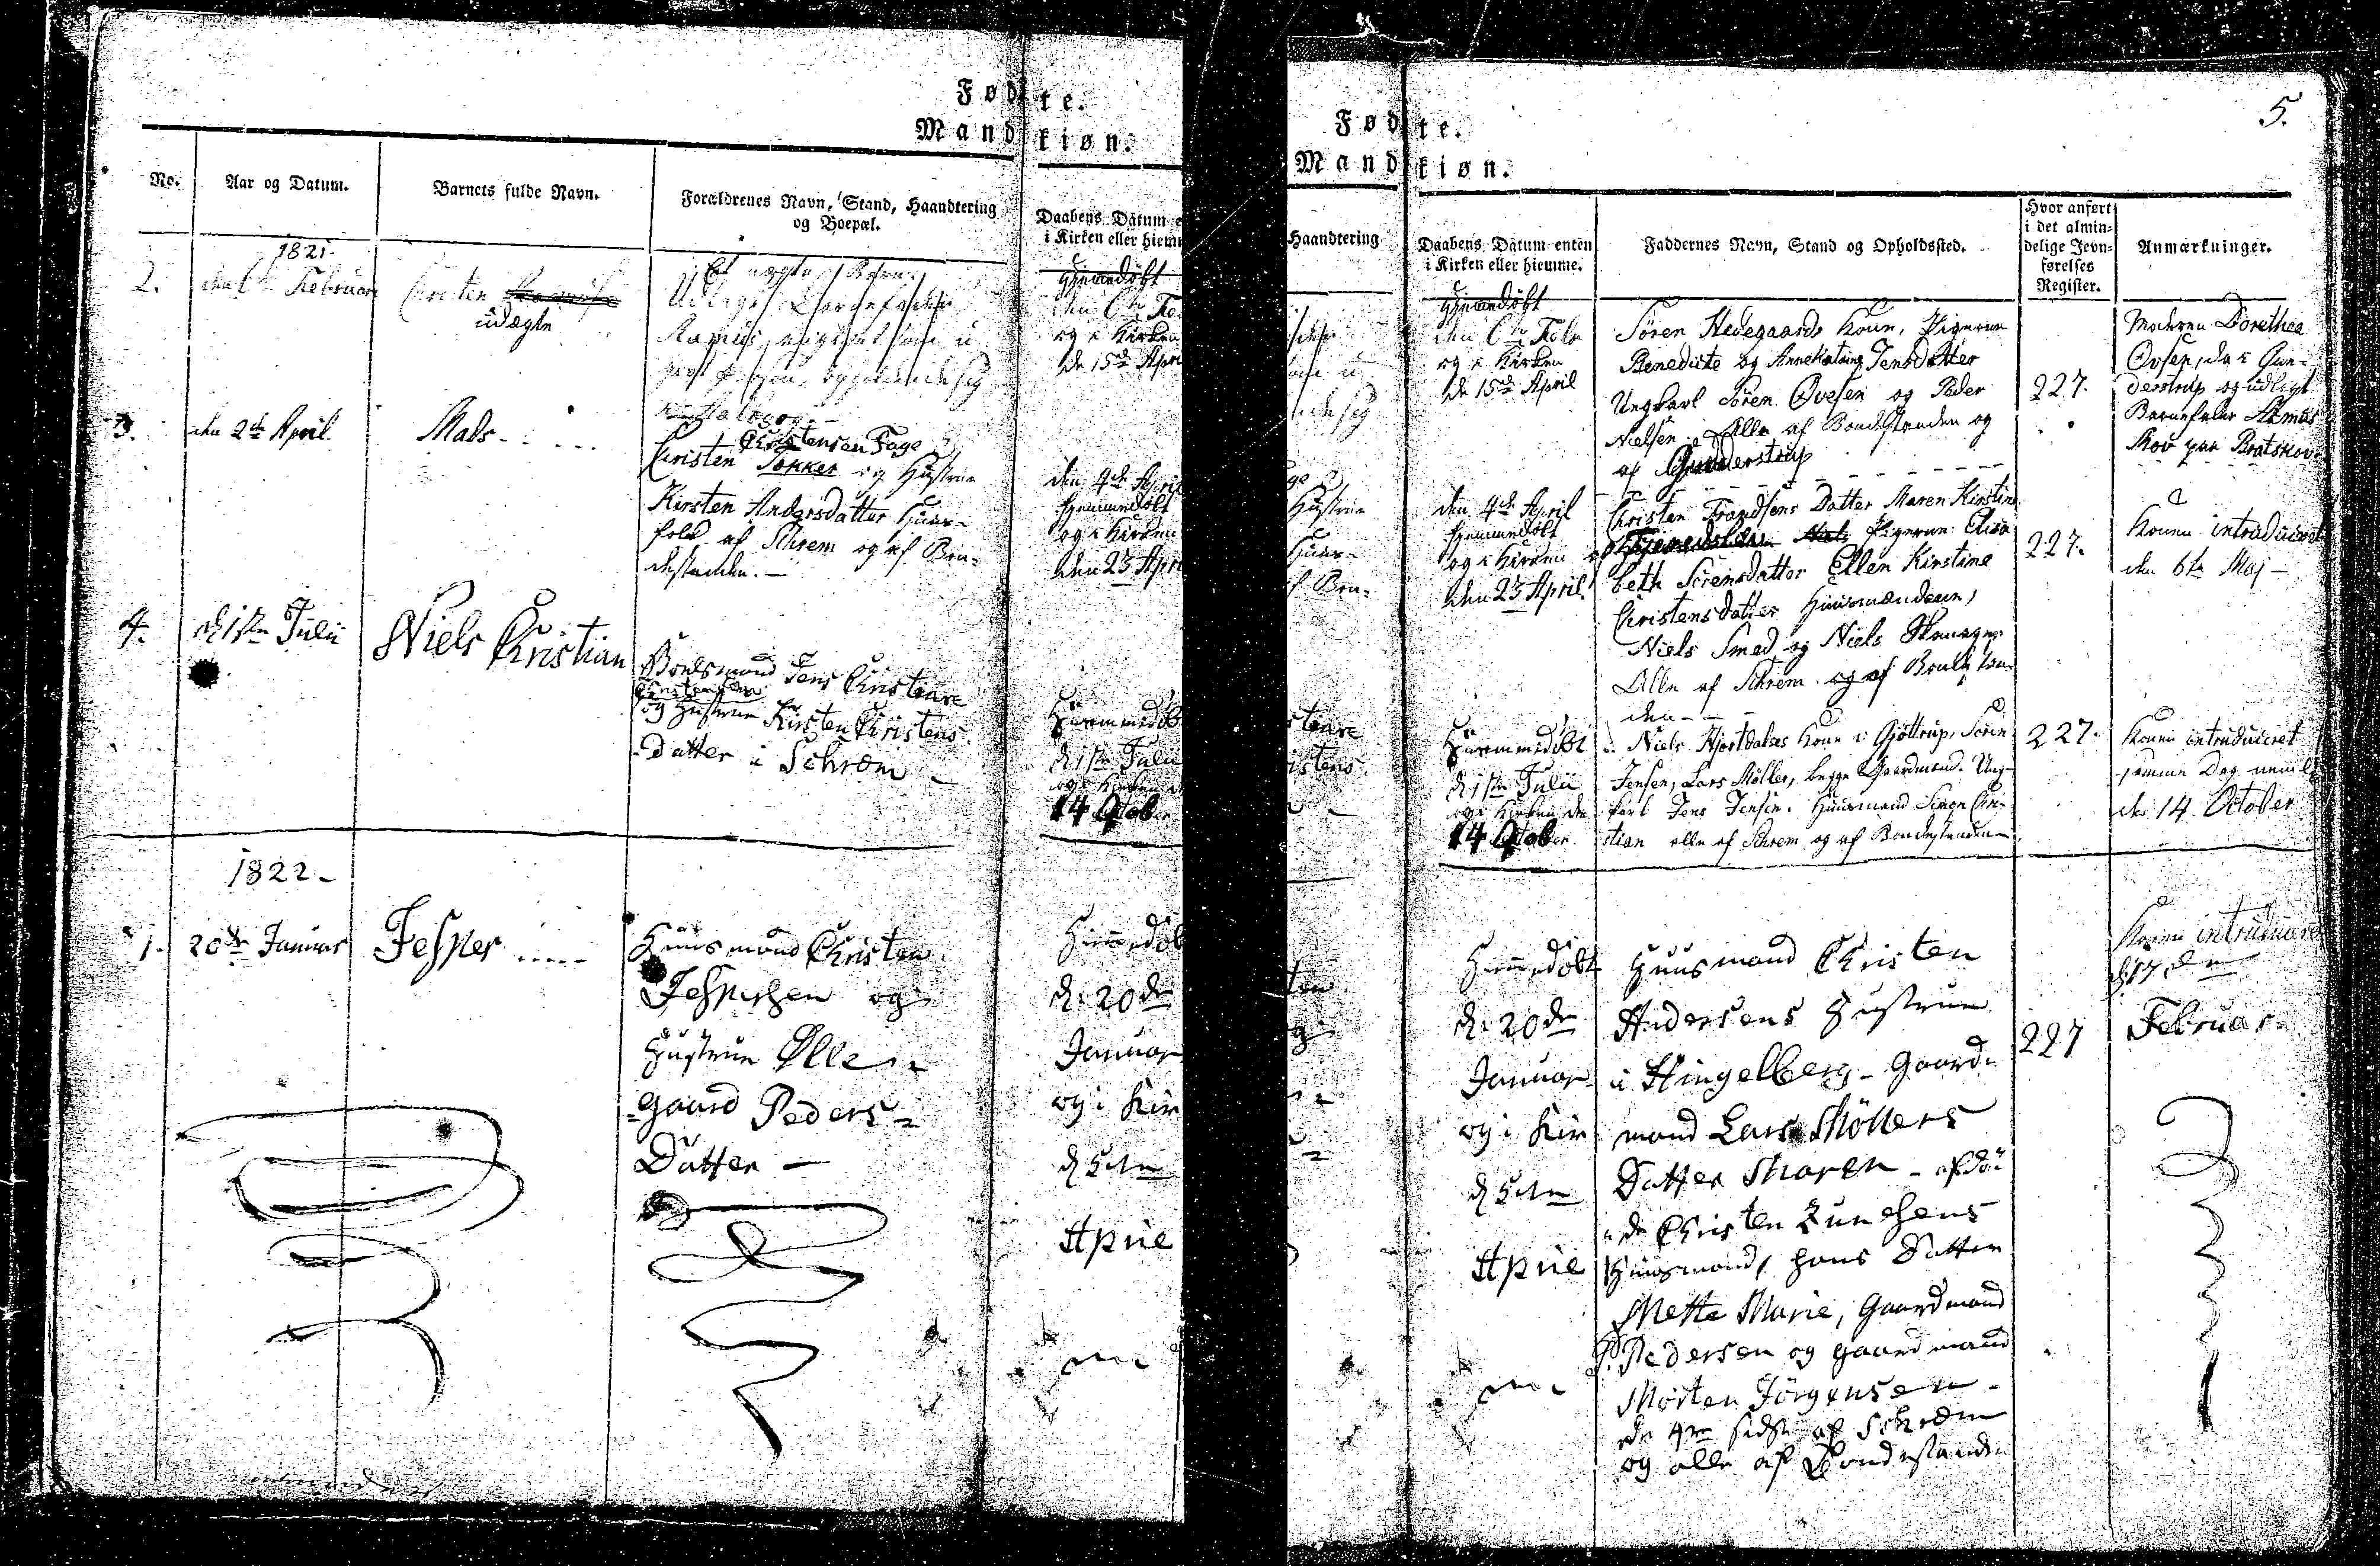 Fødte.
Mandkiøn.
No.
Aar og Datum.
Barnets fulde Navn.
Forældrenes Navn, Stand, Haandtering
og Boepæl.
Daabens Datum
i Kirken eller hiem
1821.
2.
den 6te Februar
Christen
uægte
og i Kirken
de 15de Apri
3.
den 2de April.
Mads
Christensen Fage
Christen og Hustrue
Kirsten Andersdatter Huus-
folk af Schrem og af Bon-
destanden.
den 4de April
hjemmedøbt
og i Kirken
den 23 Apri
4.
d 1ste Julii
Niels Christian
Boelsmand Jens Christians
Christensen
og Hustrue Kirsten Christens
Datter i Schræm
Hiemmedøb
d 1ste Julii
og i Kirken
14 October
1822
1.
20de Januar
Jesper
Huusmand Christen
Jespersen og
Hustrue Elle
gaard Peders
Datter
Hiemedøb
d: 20de
Januar
og i Kir
d 5te
April
5.
Fødte.
Mandkiøn.
Haandtering
Daabens Datum enten
i Kirken eller hiemme.
Faddernes Navn, Stand og Opholdssted.
Hvor anført
i det almin-
delige Jevn-
førelses
Register.
Anmærkninger.
Hjemmedøbt
den 6te Febr
og i Kirken
de 15de April
Søren Hedegaards Kone, Pigerne
Benedicte og Anne Jensdatter
Ungkarl Søren Ovesen og Peder
Nielsen, Alle af Bondestanden og
af Gunderstrup
227.
Moderen Dorethea
Ovsen, da i Gun-
derstrup og udlagt
Barnefader
Skov paa Bratskov
den 4de April
hjemmedøbt
og i Kirken
den 23 April.
Christen Frandsens Datter Maren Kirstine
Pigerne: Elisa
beth Sørensdatter Ellen Kirstine
Christensdatter Huusmændene,
Niels Smed og Niels
Alle af Schrem og af Bondestan
den
227.
Konen introduceret
den 6te Maj
Hiemmedøbt
d 1ste Julii
og i Kirken den
14 October
Niels Hjortdales Kone i Gjøttrup, Søren
Jensen, Lars Møller, begge Gaardmænd. Ung-
karl Jens Jensen. Huusmand Simon Chri-
stian alle af Schrem og af Bondestanden
227.
Konen introduceret
samme Dag nemlig
den 14 October
Hiemedøbt
d: 20de
Januar
og i Kir
d 5te
April
Huusmand Christen
Andersens Hustrue
i Hingelberg - Gaard
mand Lars Møllers
Datter Maren - afdø
de Christen
Huusmand, hans Datter
Mette Marie, Gaardmand
P. Pedersen og gaardmand
Morten Jörgensen
de 4re sidste af Schræm
og alle af Bondestanden
227
Konen introduceret
d 17de
Februar